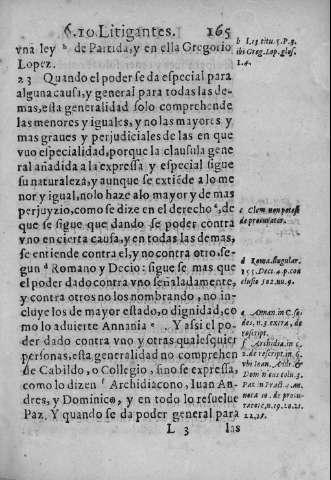 §.10. Litigantes. 165
vna ley b de Partida, y en ella Gregorio
Lopez.
23 Quando el poder se da especial para
alguna causa, y general para todas las de-
mas, esta generalidad solo comprehende
las menores y iguales, y no las mayores y
mas graues y perjudiciales de las en que
vuo especialidad, porque la clausula gene
ral añadida a la expressa y especial sigue
su naturaleza, y aunque se extiẽde a lo me
nor y igual, nolo haze alo mayor y de mas
perjuyzio, como se dize en el derecho c, de
que se sigue que dando se poder contra
vno en cierta causa, y en todas las demas,
se entiende contra el, y no contra otro, se-
gun d Romano y Decio: sigue se mas que
el poder dado contra vno señaladamente,
y contra otros no los nombrando, no in-
cluye los de mayor estado, o dignidad, co
mo lo aduierte Annania e. Y assi el po-
der dado contra vno y otras qualesquier
personas, esta generalidad no comprehen
de Cabildo, o Collegio, sino se expressa,
como lo dizen f Archidiacono, Iuan An-
dres, y Dominico, y en todo lo resuelue
Paz. Y quando se da poder general para
L 3 las
b L.19. titu. 5. P. 3.
ibi Greg. Lop. glos.
L.4.
c Clem. non potest
de procurator.
d Roma. singular.
155. Deci. 4. p. con
e Anan. in C. se-
des, n. 3. extra, de
rescript.
f Archidia. in c.
2. de rescript. in 6.
vbi Ioan. Andr. &
Dom
Paz in Pract.
de procu-
ratore, n. 19. 20. 21.
22. 23.